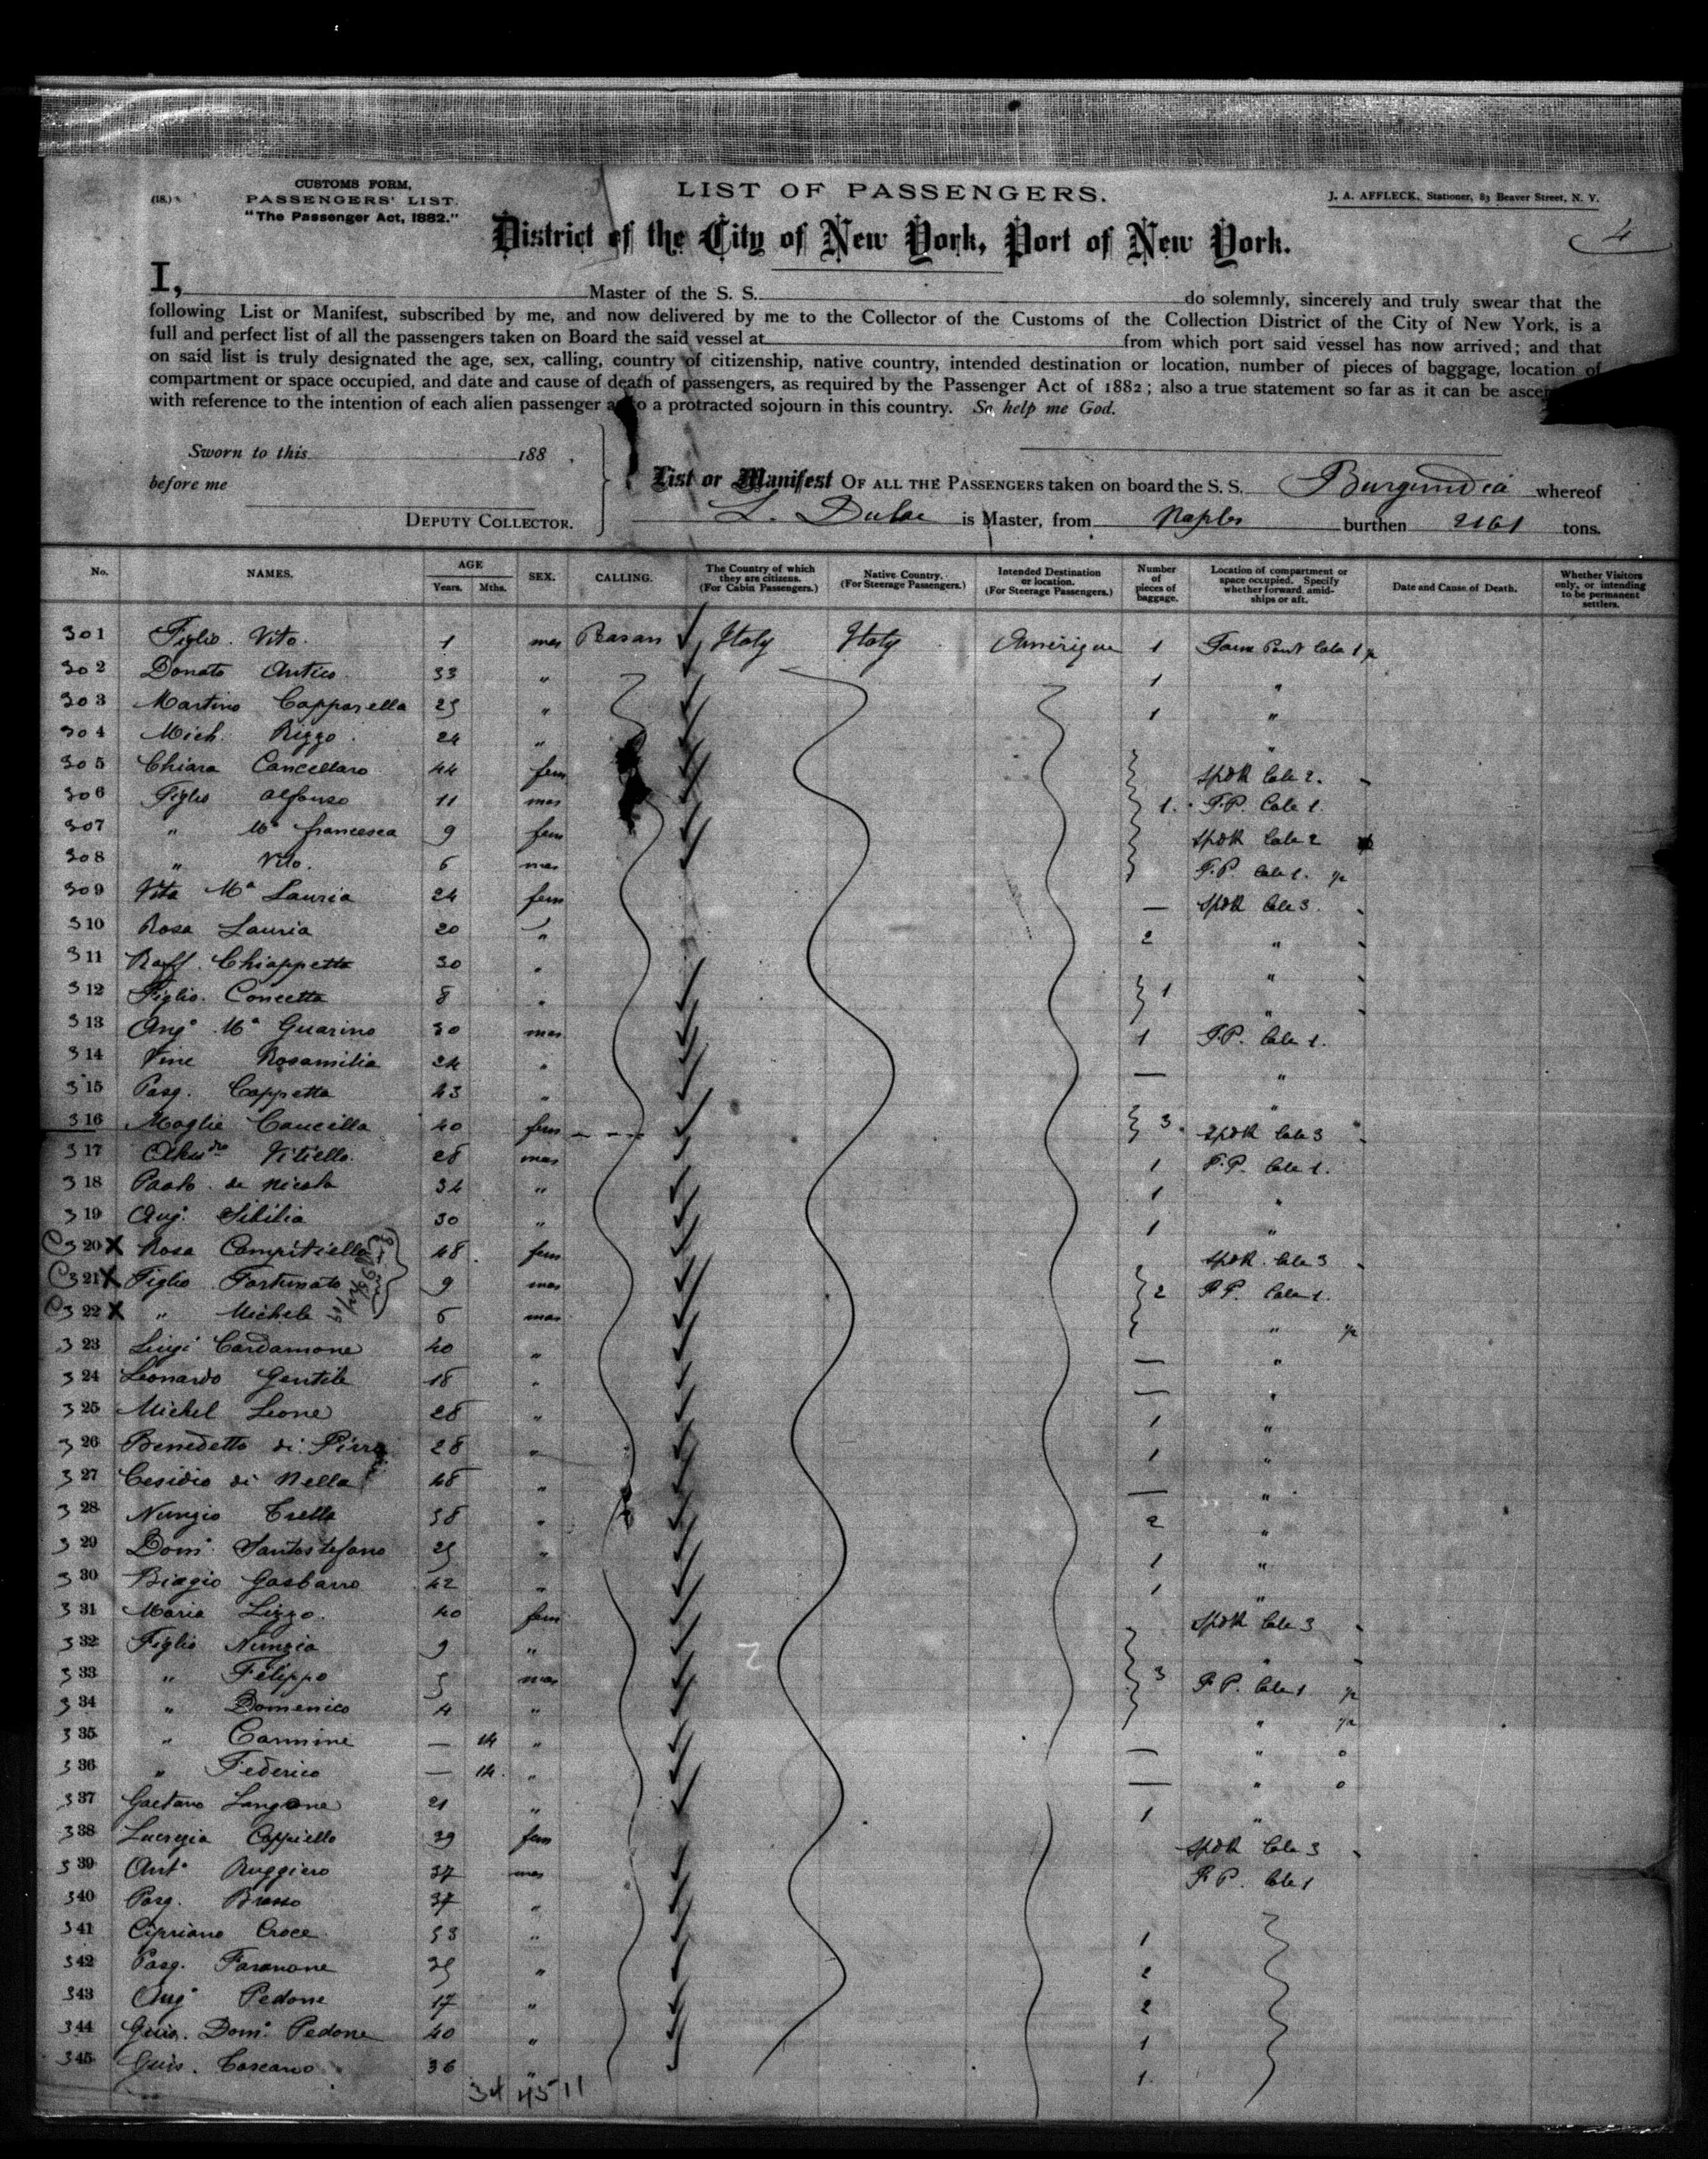 CUSTOMS FORM,
PASSENGERS' LIST.
"The Passenger Act, 1882."
(18.)
LIST OF PASSENGERS.
J. A. AFFLECK, Stationer, 83 Beaver Street, N. Y.
4
District of the City of New York, Port of New York.
I, Master of the S. S. do solemnly, sincerely and truly swear that the
following List or Manifest, subscribed by me, and now delivered by me to the Collector of the Customs of the Collection District of the City of New York, is a
full and perfect list of all the passengers taken on Board the said vessel at from which port said vessel has now arrived; and that
on said list is truly designated the age, sex, calling, country of citizenship, native country, intended destination or location, number of pieces of baggage, location of
compartment or space occupied, and date and cause of death of passengers, as required by the Passenger Act of 1882; also a true statement so far as it can be
with reference to the intention of each alien passenger to a protracted sojourn in this country. So help me God.
Sworn to this 188 .
before me
DEPUTY COLLECTOR.
List or Manifest OF ALL THE PASSENGERS taken on board the S. S. Burgundia whereof
L. Dulac is Master, from Naples burthen 2161 tons.
No. NAMES. AGE Years. Mths. SEX. CALLING. The Country of which they are citizens. (For Cabin Passengers.) Native Country. (For Steerage Passengers.) Intended Destination or location. (For Steerage Passengers.) Number of pieces of baggage. Location of compartment or space occupied. Specify whether forward, amidships or aft. Date and Cause of Death. Whether Visitors only, or intending to be permanent settlers.
301 Figlio Vito 1 mas Italy Italy Amérique 1
302 Donato Antico 33 " 1 "
303 Martino Capparella 25 " 1 "
304 Mich. Rizzo 24 " "
305 Chiara Cancellaro 44 fem Cale 2.
306 Figlio Alfonso 11 mas 1. F.P. Cale 1.
307 " Ma francesca 9 fem Cale 2
308 " Vito. 6 mas F.P. Cale 1.
309 Vita Ma Lauria 24 fem — Cale 3
310 Rosa Lauria 20 " 2 "
311 Raff. Chiappetta 30 " "
312 Figlio. Concetta 8 " 1 "
313 Ang° Ma Guarino 30 mas 1 F.P. Cale 1.
314 Vinc Rosamilia 24 " — "
315 Pasq. Cappetta 43 " "
316 Moglie Cancilla 40 fem 3. Cale 3
317 Vitiello 28 mas 1 F.P. Cale 1.
318 Paolo de Nicola 34 " 1 "
319 Ang. Sibilia 30 " 1 "
C 320 X Rosa Campitiello 48 fem Cale 3
C 321 X Figlio Fortunato 9 mas 2 F.P. Cale 1.
C 322 X " Michele 6 mas "
323 Luigi Cardamone 40 " — "
324 Leonardo Gentile 18 " — "
325 Michel Leone 28 " 1 "
326 Benedetto di 28 " 1 "
327 Cesidio di Nella 48 " — "
328 Nunzio Trella 38 " 2 "
329 Dom. Santostefano 25 " 1 "
330 Biagio Gasbarro 42 " 1 "
331 Maria Lizzo. 40 fem Cale 3
332 Figlio Nunzia 9 " "
333 " Filippo 5 mas 3 F.P. Cale 1
334 " Domenico 4 " "
335 " Carmine — 14 " — " o
336 " Federico — 14. " — " o
337 Gaetano Langone 21 " 1 "
338 Lucrezia Cappiello 39 fem Cale 3
339 Ant° Ruggiero 37 mas F.P. Cale 1
340 Pasq. Brasso 37 "
341 Cipriano Croce 53 " 1
342 Pasq. Faranone 35 " 2
343 Ang° Pedone 17 " 2
344 Dom. Pedone 40 " 1
345 Toscano 36 " 1.
34 45 11